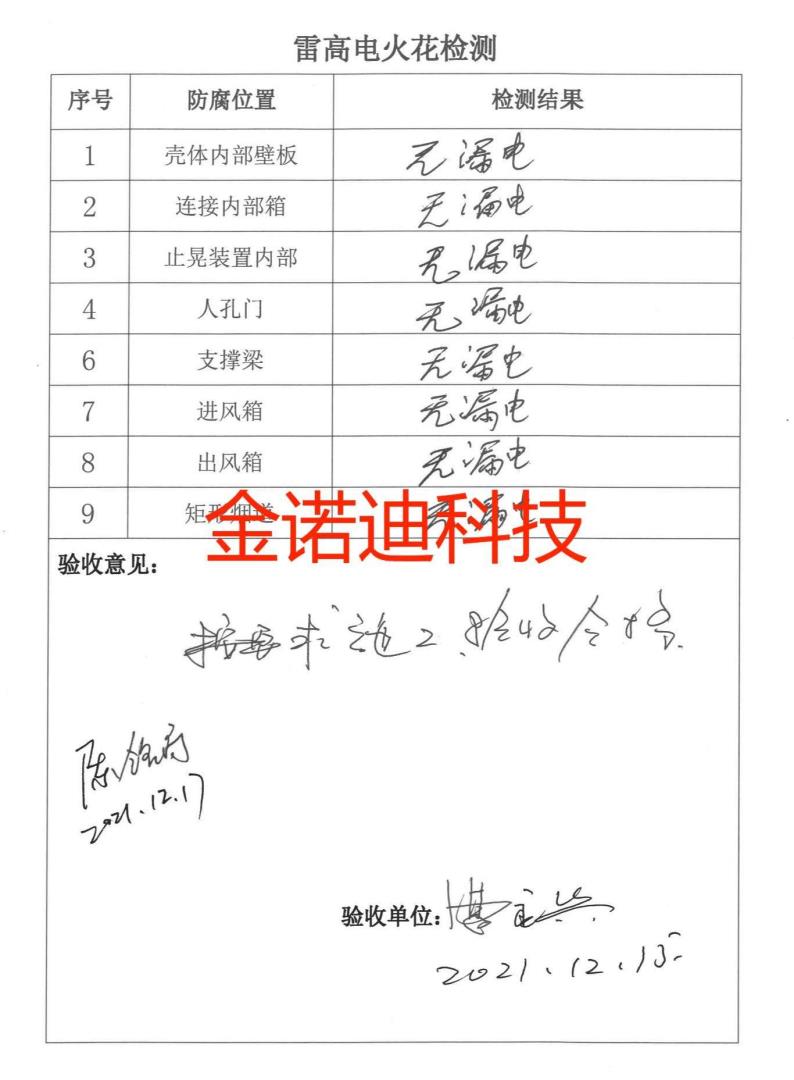 雷高电火花检测
序号 防腐位置 检测结果
1 壳体内部壁板 无漏电
2 连接内部箱 无漏电
3 止晃装置内部 无漏电
4 人孔门 无漏电
6 支撑梁 无漏电
7 进风箱 无漏电
8 出风箱 无漏电
9 矩形烟道 无漏电
金诺迪科技
验收意见：
按要求施工.验收合格.
2021.12.17
验收单位:
2021.12.15